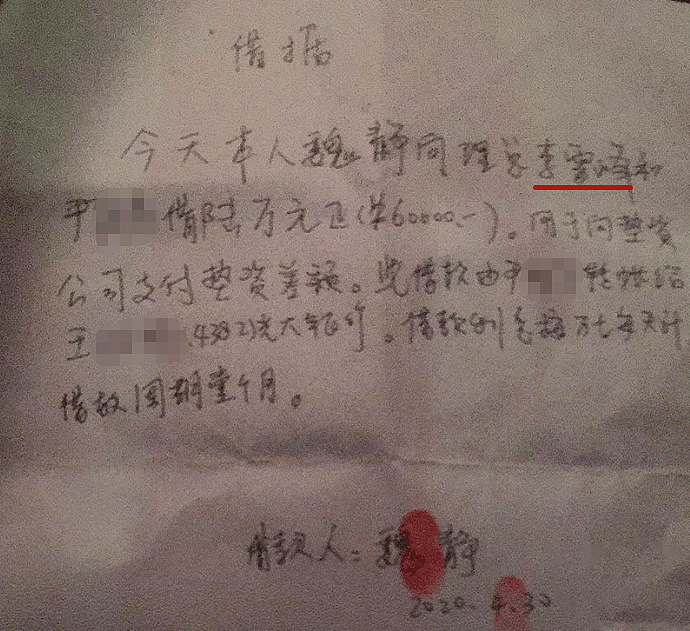 借据
今天本人魏静同理总李雷泽和
平 借陆万元正(¥60000.-)。用于向垫资
公司支付垫资差额。此借款由平 转账给
王 (4382)光大银行。借款利息按万七每天计
借款周期壹个月。
借款人：魏静
2020.4.30